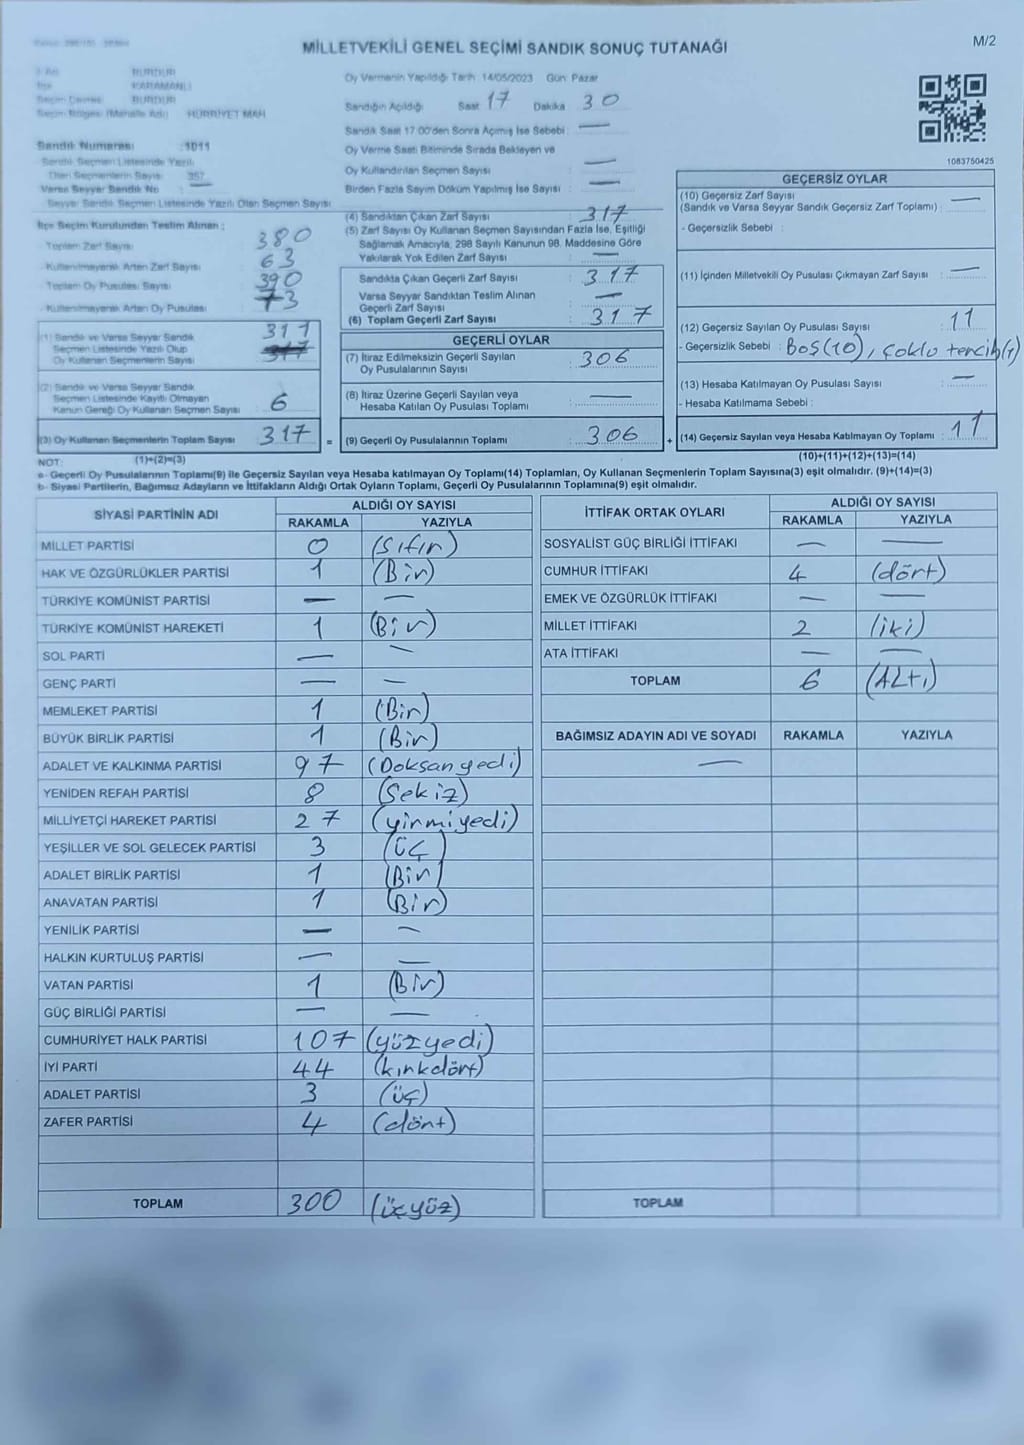 MİLLETVEKİLİ GENEL SEÇİMİ SANDIK SONUÇ TUTANAĞI
M/2
İl Adı BURDUR
İlçe KARAMANLI
Seçim Çevresi BURDUR
Seçim Bölgesi (Mahalle Adı) HÜRRİYET MAH
Sandık Numarası :1011
- Sandık Seçmen Listesinde Yazılı
Olan Seçmenlerin Sayısı : 357
Varsa Seyyar Sandık No : —
- Seyyar Sandık Seçmen Listesinde Yazılı Olan Seçmen Sayısı
İlçe Seçim Kurulundan Teslim Alınan ;
- Toplam Zarf Sayısı : 380
- Kullanılmayarak Artan Zarf Sayısı : 63
- Toplam Oy Pusulası Sayısı : 390
- Kullanılmayarak Artan Oy Pusulası : 73
(1) Sandık ve Varsa Seyyar Sandık 311
Seçmen Listesinde Yazılı Olup
Oy Kullanan Seçmenlerin Sayısı : 317
(2) Sandık ve Varsa Seyyar Sandık
Seçmen Listesinde Kayıtlı Olmayan
Kanun Gereği Oy Kullanan Seçmen Sayısı : 6
(3) Oy Kullanan Seçmenlerin Toplam Sayısı : 317 =
(1)+(2)=(3)
Oy Vermenin Yapıldığı Tarih :14/05/2023 Gün: Pazar
Sandığın Açıldığı Saat: 17 Dakika : 30
Sandık Saat 17:00'den Sonra Açılmış İse Sebebi : —
Oy Verme Saati Bitiminde Sırada Bekleyen ve
Oy Kullandırılan Seçmen Sayısı : —
Birden Fazla Sayım Döküm Yapılmış İse Sayısı : —
(4) Sandıktan Çıkan Zarf Sayısı : 317
(5) Zarf Sayısı Oy Kullanan Seçmen Sayısından Fazla İse, Eşitliği
Sağlamak Amacıyla, 298 Sayılı Kanunun 98. Maddesine Göre
Yakılarak Yok Edilen Zarf Sayısı : —
Sandıkta Çıkan Geçerli Zarf Sayısı : 317
Varsa Seyyar Sandıktan Teslim Alınan
Geçerli Zarf Sayısı : —
(6) Toplam Geçerli Zarf Sayısı : 317
GEÇERLİ OYLAR
(7) İtiraz Edilmeksizin Geçerli Sayılan
Oy Pusulalarının Sayısı : 306
(8) İtiraz Üzerine Geçerli Sayılan veya
Hesaba Katılan Oy Pusulası Toplamı : —
(9) Geçerli Oy Pusulalarının Toplamı : 306 +
1083750425
GEÇERSİZ OYLAR
(10) Geçersiz Zarf Sayısı
(Sandık ve Varsa Seyyar Sandık Geçersiz Zarf Toplamı) : —
- Geçersizlik Sebebi :
(11) İçinden Milletvekili Oy Pusulası Çıkmayan Zarf Sayısı : —
(12) Geçersiz Sayılan Oy Pusulası Sayısı : 11
- Geçersizlik Sebebi : Boş(10), çoklu tercih(1)
(13) Hesaba Katılmayan Oy Pusulası Sayısı : —
- Hesaba Katılmama Sebebi :
(14) Geçersiz Sayılan veya Hesaba Katılmayan Oy Toplamı : 11
(10)+(11)+(12)+(13)=(14)
NOT:
a- Geçerli Oy Pusulalarının Toplamı(9) ile Geçersiz Sayılan veya Hesaba katılmayan Oy Toplamı(14) Toplamları, Oy Kullanan Seçmenlerin Toplam Sayısına(3) eşit olmalıdır. (9)+(14)=(3)
b- Siyasi Partilerin, Bağımsız Adayların ve İttifakların Aldığı Ortak Oyların Toplamı, Geçerli Oy Pusulalarının Toplamına(9) eşit olmalıdır.
SİYASİ PARTİNİN ADI
ALDIĞI OY SAYISI
RAKAMLA YAZIYLA
MİLLET PARTİSİ 0 (Sıfır)
HAK VE ÖZGÜRLÜKLER PARTİSİ 1 (Bir)
TÜRKİYE KOMÜNİST PARTİSİ — —
TÜRKİYE KOMÜNİST HAREKETİ 1 (Bir)
SOL PARTİ — —
GENÇ PARTİ — —
MEMLEKET PARTİSİ 1 (Bir)
BÜYÜK BİRLİK PARTİSİ 1 (Bir)
ADALET VE KALKINMA PARTİSİ 97 (Doksanyedi)
YENİDEN REFAH PARTİSİ 8 (Sekiz)
MİLLİYETÇİ HAREKET PARTİSİ 27 (yirmiyedi)
YEŞİLLER VE SOL GELECEK PARTİSİ 3 (üç)
ADALET BİRLİK PARTİSİ 1 (Bir)
ANAVATAN PARTİSİ 1 (Bir)
YENİLİK PARTİSİ — —
HALKIN KURTULUŞ PARTİSİ — —
VATAN PARTİSİ 1 (Bir)
GÜÇ BİRLİĞİ PARTİSİ — —
CUMHURİYET HALK PARTİSİ 107 (yüzyedi)
İYİ PARTİ 44 (kırkdört)
ADALET PARTİSİ 3 (üç)
ZAFER PARTİSİ 4 (dört)
TOPLAM 300 (üçyüz)
İTTİFAK ORTAK OYLARI
ALDIĞI OY SAYISI
RAKAMLA YAZIYLA
SOSYALİST GÜÇ BİRLİĞİ İTTİFAKI — —
CUMHUR İTTİFAKI 4 (dört)
EMEK VE ÖZGÜRLÜK İTTİFAKI — —
MİLLET İTTİFAKI 2 (iki)
ATA İTTİFAKI — —
TOPLAM 6 (ALtı)
BAĞIMSIZ ADAYIN ADI VE SOYADI RAKAMLA YAZIYLA
—
TOPLAM